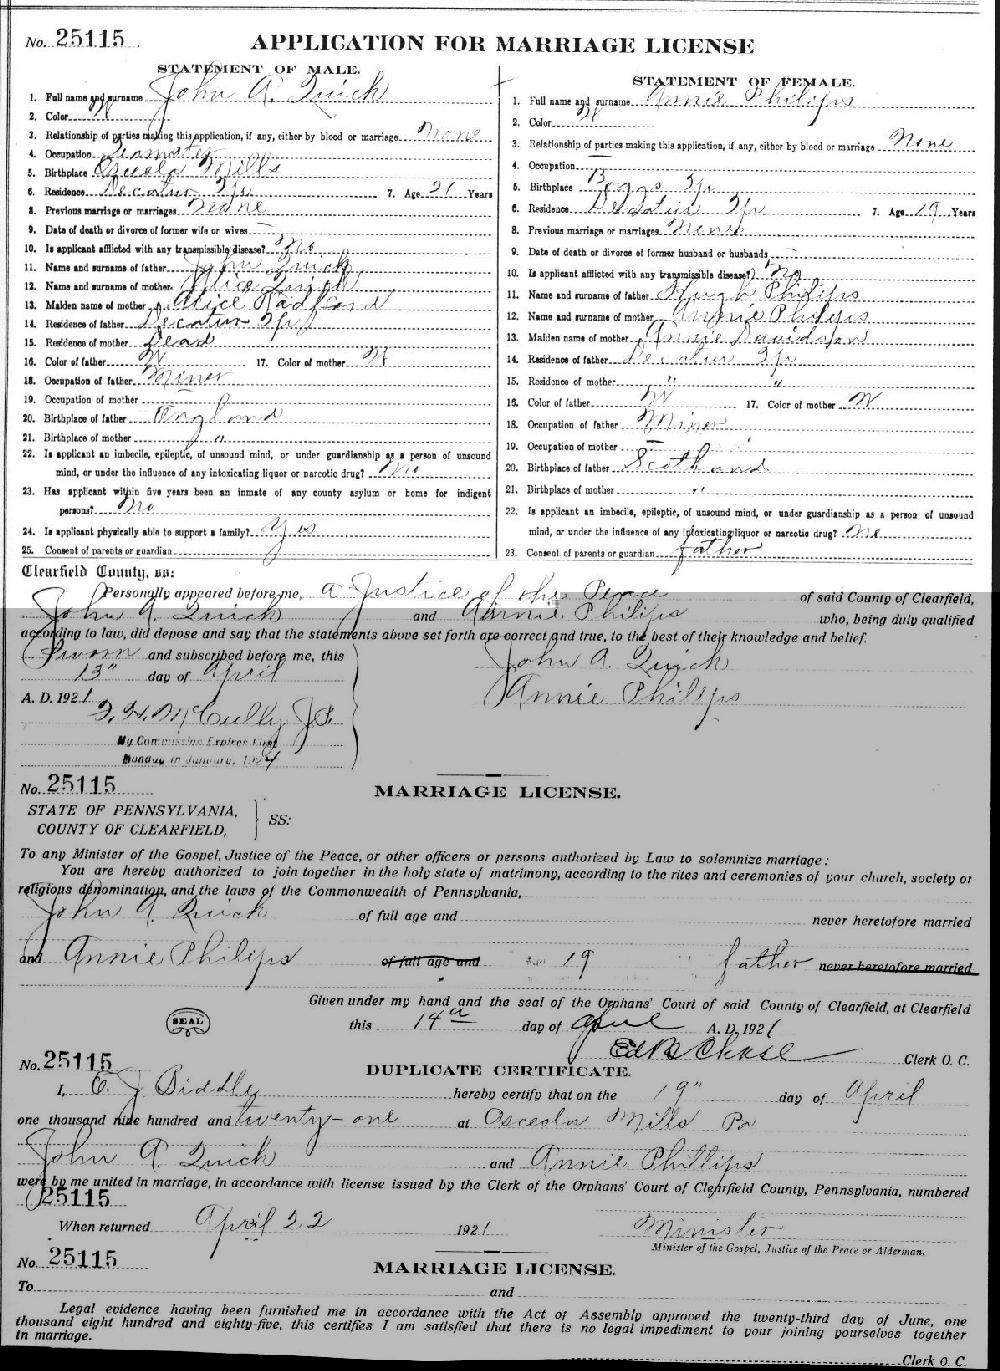 No. 25115
APPLICATION FOR MARRIAGE LICENSE
STATEMENT OF MALE.
1. Full name and surname John A. Quick
2. Color W
3. Relationship of parties making this application, if any, either by blood or marriage None
4. Occupation Teamster
5. Birthplace Osceola Mills
6. Residence Decatur Tp. 7. Age 21 Years
8. Previous marriage or marriages None
9. Date of death or divorce of former wife or wives
10. Is applicant afflicted with any transmissible disease? No
11. Name and surname of father John Quick
12. Name and surname of mother Alice Quick
13. Maiden name of mother Alice Radford
14. Residence of father Decatur Tp
15. Residence of mother Dead
16. Color of father W 17. Color of mother W
18. Occupation of father Miner
19. Occupation of mother
20. Birthplace of father England
21. Birthplace of mother "
22. Is applicant an imbecile, epileptic, of unsound mind, or under guardianship as a person of unsound
mind, or under the influence of any intoxicating liquor or narcotic drug? No
23. Has applicant within five years been an inmate of any county asylum or home for indigent
persons? No
24. Is applicant physically able to support a family? Yes
25. Consent of parents or guardian
STATEMENT OF FEMALE.
1. Full name and surname Annie Philips
2. Color W
3. Relationship of parties making this application, if any, either by blood or marriage None
4. Occupation
5. Birthplace Boggs Tp
6. Residence Decatur Tp 7. Age 19 Years
8. Previous marriage or marriages None
9. Date of death or divorce of former husband or husbands
10. Is applicant afflicted with any transmissible disease? No
11. Name and surname of father Hugh Philips
12. Name and surname of mother Annie Philips
13. Maiden name of mother Annie Davidson
14. Residence of father Decatur Tp
15. Residence of mother " "
16. Color of father W 17. Color of mother W
18. Occupation of father Miner
19. Occupation of mother
20. Birthplace of father Scotland
21. Birthplace of mother "
22. Is applicant an imbecile, epileptic, of unsound mind, or under guardianship as a person of unsound
mind, or under the influence of any intoxicating liquor or narcotic drug? No
23. Consent of parents or guardian father
Clearfield County, ss:
Personally appeared before me, a Justice of the Peace of said County of Clearfield,
John A. Quick and Annie Philips who, being duly qualified
according to law, did depose and say that the statements above set forth are correct and true, to the best of their knowledge and belief.
Sworn and subscribed before me, this
13" day of April
A. D. 1921
John A. Quick
Annie Philips
McCully J.P.
My Commission Expires First
Monday in January, 1924
No. 25115
MARRIAGE LICENSE.
STATE OF PENNSYLVANIA,
COUNTY OF CLEARFIELD, SS:
To any Minister of the Gospel, Justice of the Peace, or other officers or persons authorized by Law to solemnize marriage:
You are hereby authorized to join together in the holy state of matrimony, according to the rites and ceremonies of your church, society or
religious denomination, and the laws of the Commonwealth of Pennsylvania,
John A. Quick of full age and never heretofore married
and Annie Philips of full age and 19 father never heretofore married
Given under my hand and the seal of the Orphans' Court of said County of Clearfield, at Clearfield
SEAL
this 14th day of April A. D. 1921
Chase Clerk O. C.
No. 25115
DUPLICATE CERTIFICATE.
I, Biddle hereby certify that on the 19" day of April
one thousand nine hundred and twenty-one at Osceola Mills Pa
John A. Quick and Annie Phillips
were by me united in marriage, in accordance with license issued by the Clerk of the Orphans' Court of Clearfield County, Pennsylvania, numbered
25115
When returned April 22 1921 Minister
Minister of the Gospel, Justice of the Peace or Alderman.
No. 25115
MARRIAGE LICENSE.
To and
Legal evidence having been furnished me in accordance with the Act of Assembly approved the twenty-third day of June, one
thousand eight hundred and eighty-five, this certifies I am satisfied that there is no legal impediment to your joining yourselves together
in marriage.
Clerk O. C.